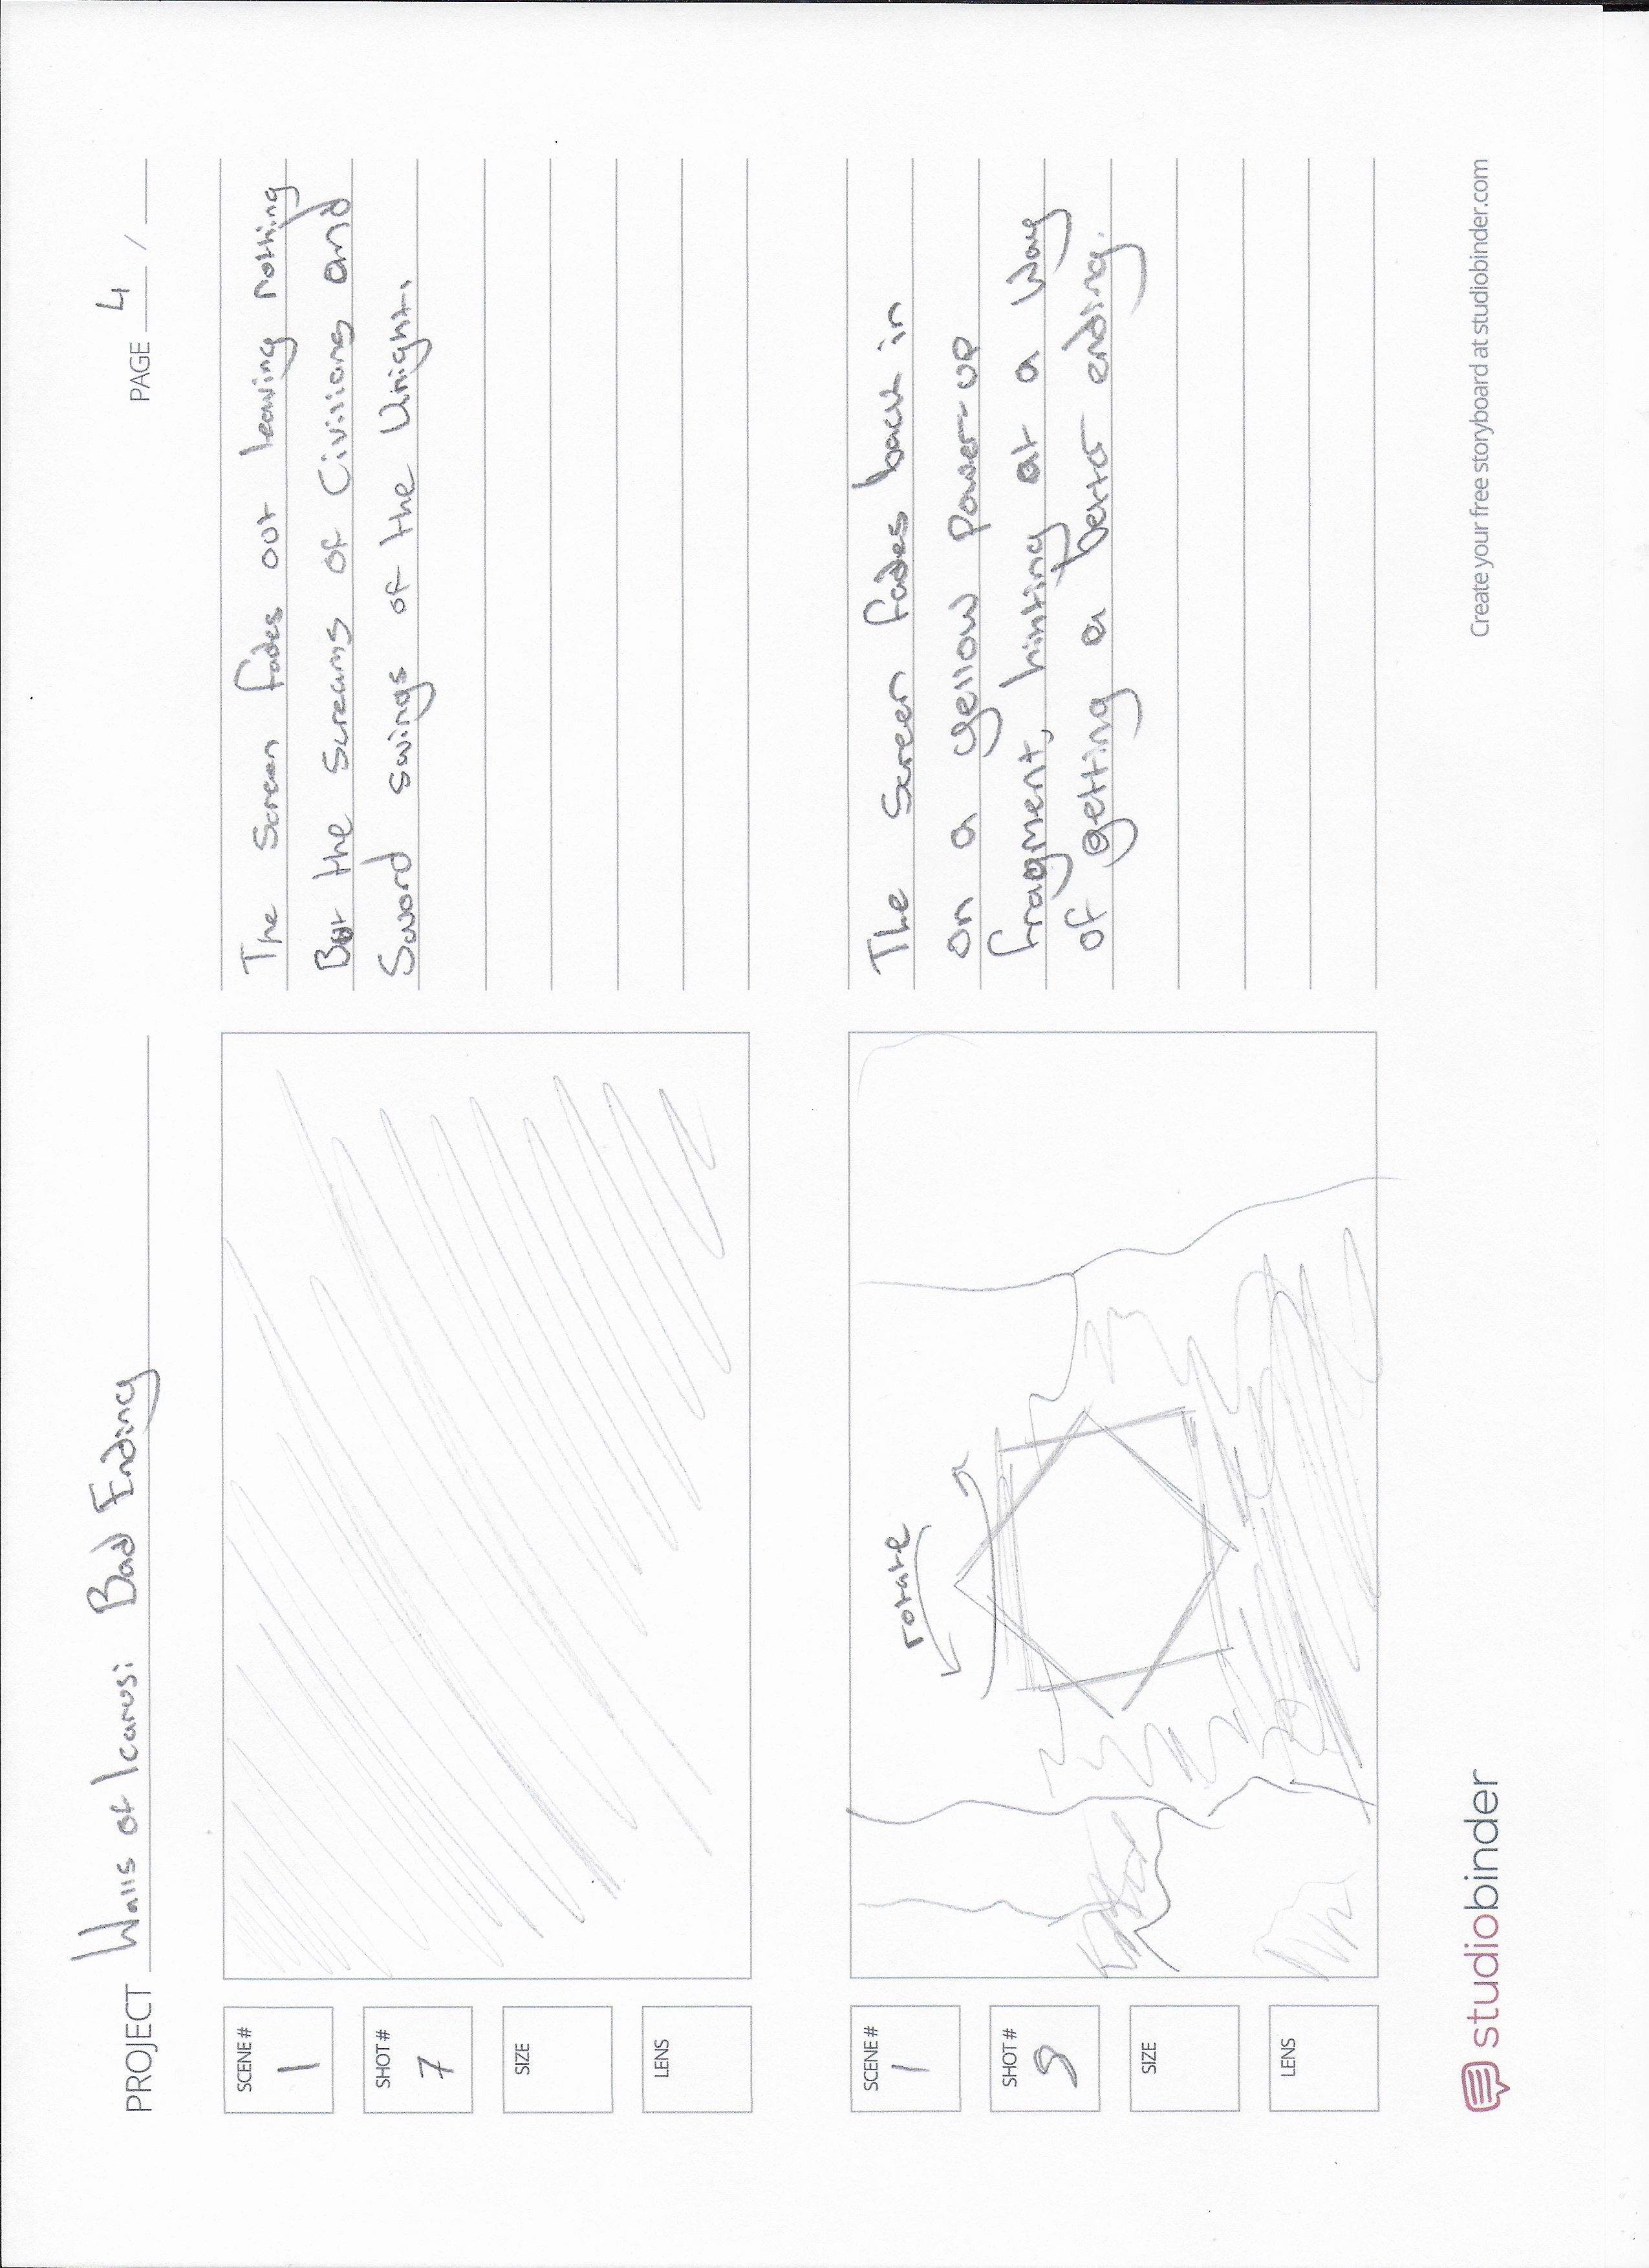 PROJECT Walls of Icarus: Bad Ending
PAGE 4 /
SCENE #
1
SHOT #
7
SIZE
LENS
The Screen fades out leaving nothing
But the screams of Civilians and
Sword swings of the Knight.
SCENE #
1
SHOT #
9
SIZE
LENS
rotate
The Screen fades back in
on a yellow Power-up
fragment, hinting at a way
of getting a better ending.
studiobinder
Create your free storyboard at studiobinder.com